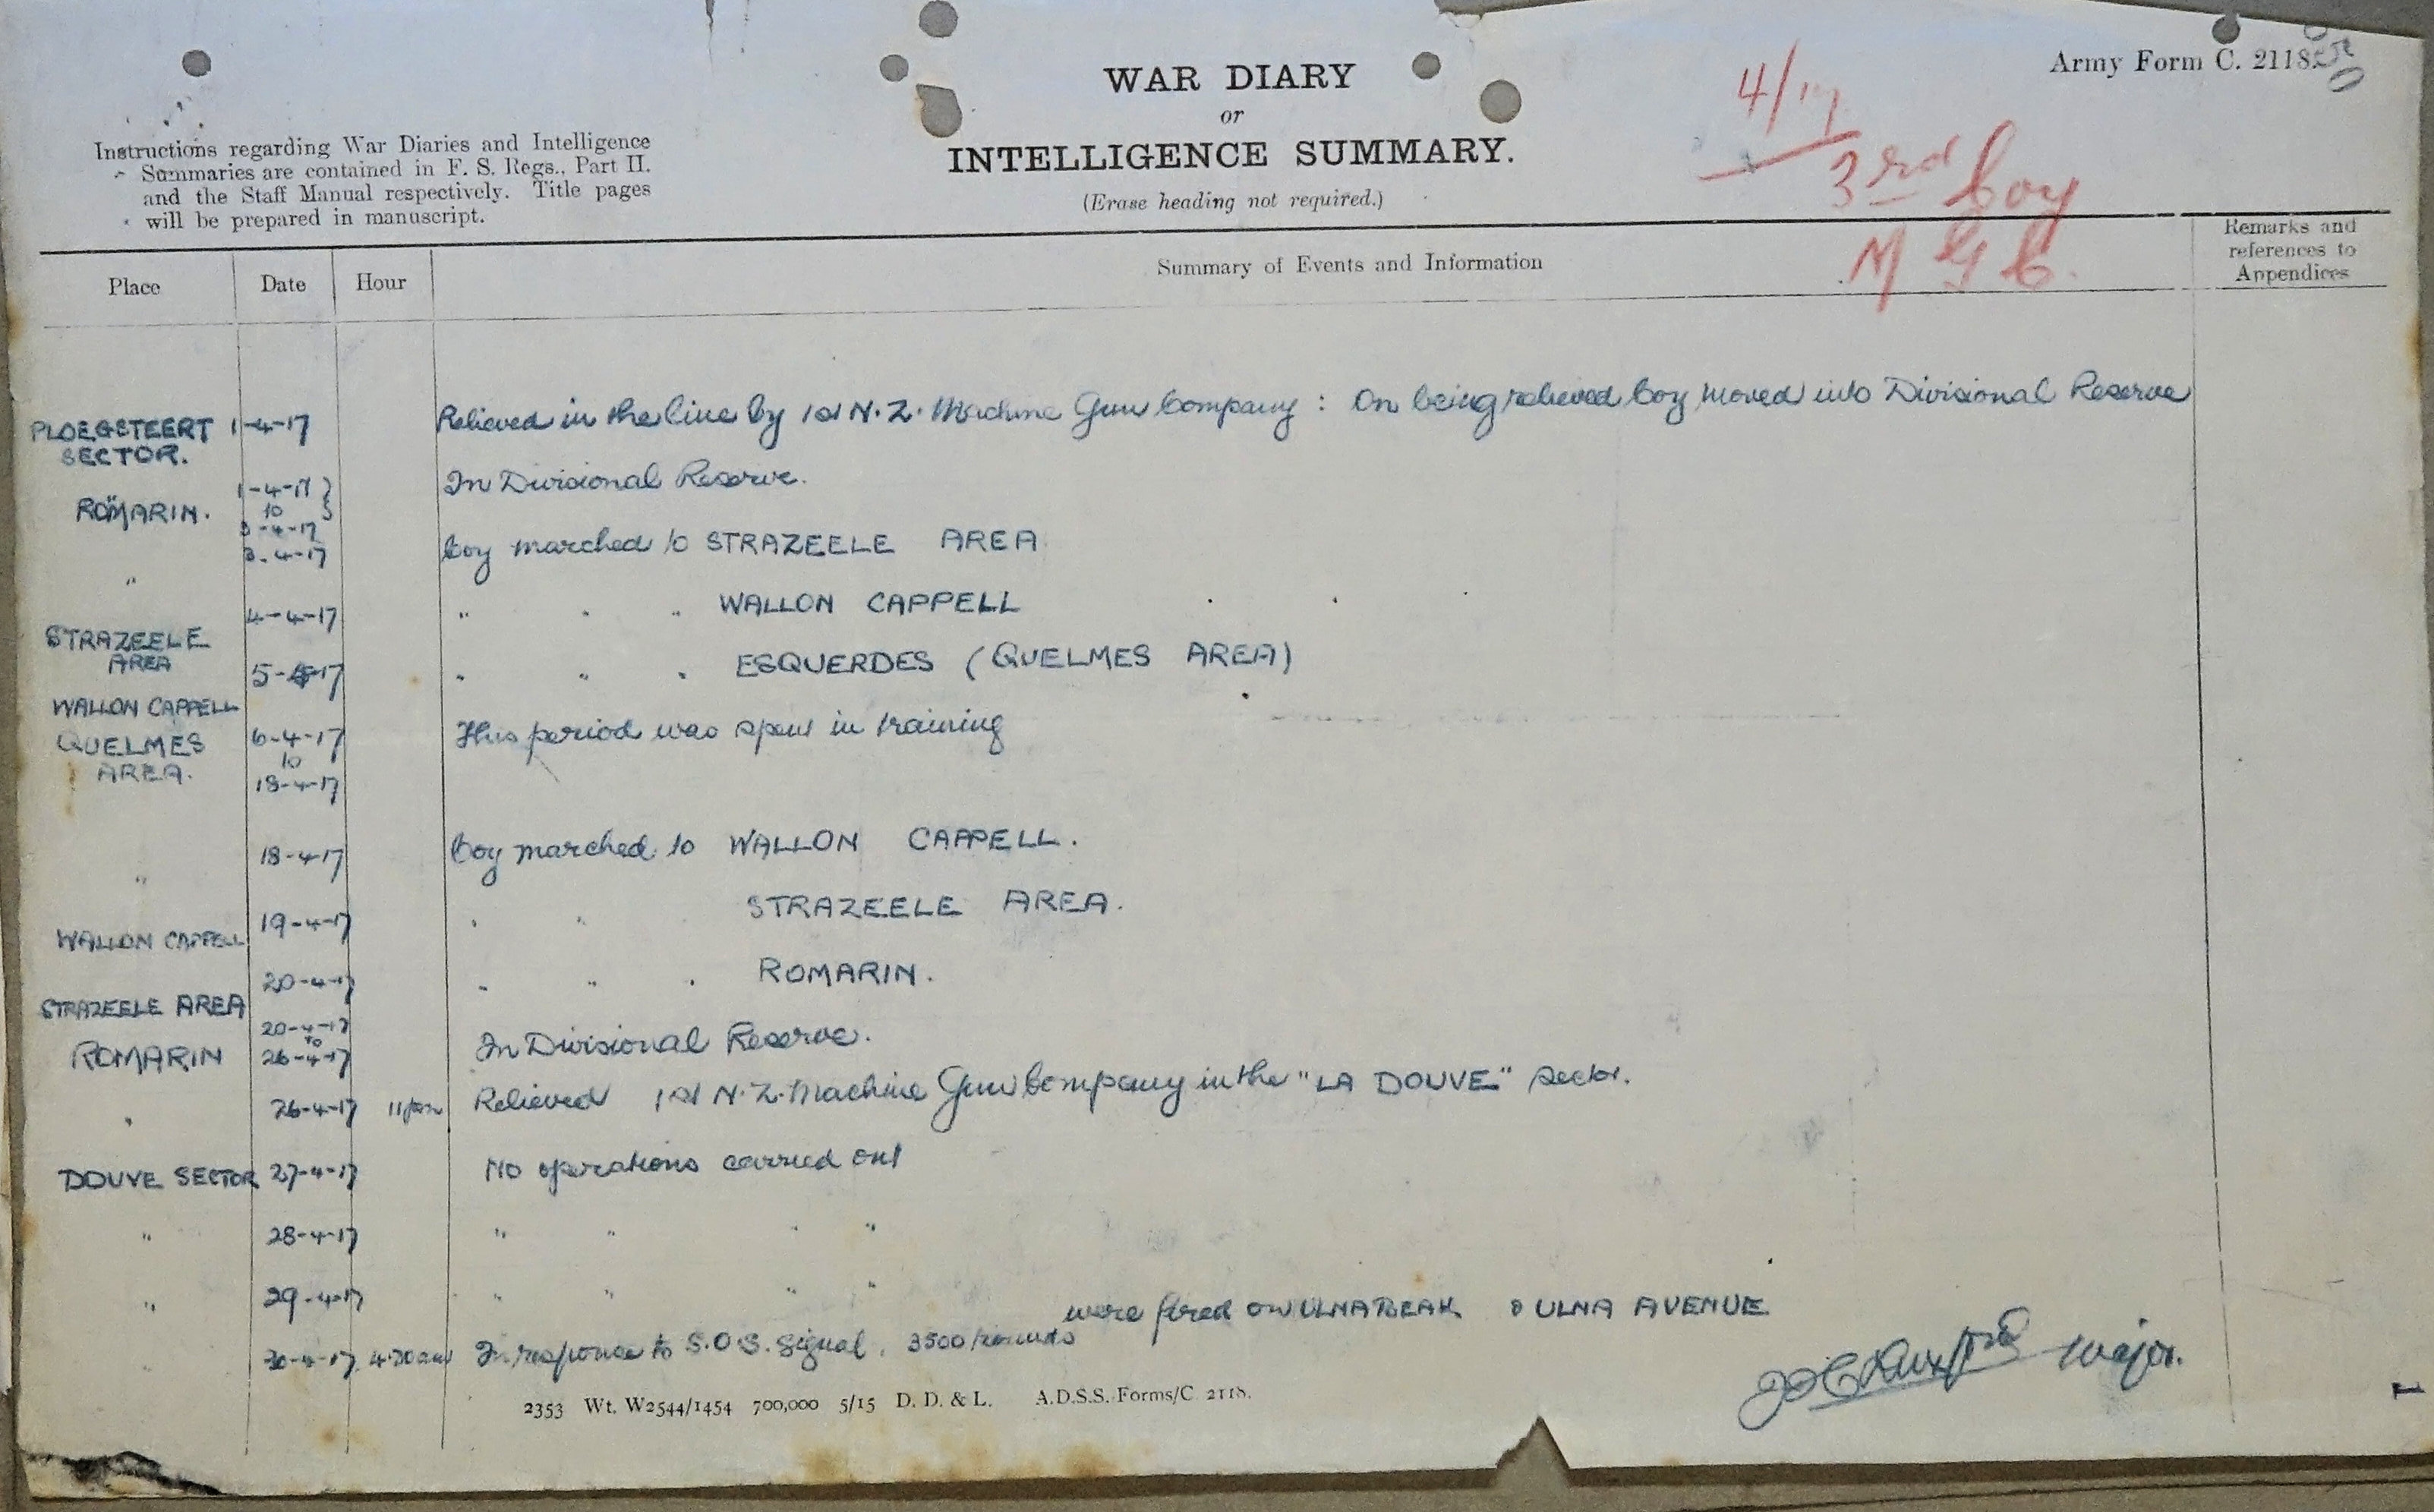 Army Form C. 2118.
WAR DIARY
or
INTELLIGENCE SUMMARY.
(Erase heading not required.)
Instructions regarding War Diaries and Intelligence
Summaries are contained in F. S. Regs., Part II.
and the Staff Manual respectively. Title pages
will be prepared in manuscript.
4/17
3rd Coy
M G C.
Place Date Hour Summary of Events and Information Remarks and references to Appendices
PLOEGSTEERT SECTOR. 1-4-17 Relieved in the line by 1st N.Z. Machine Gun Company : On being relieved Coy moved into Divisional Reserve
ROMARIN. 1-4-17 to 3-4-17 In Divisional Reserve.
" 3-4-17 Coy marched to STRAZEELE AREA
STRAZEELE AREA 4-4-17 " " " WALLON CAPPELL
WALLON CAPPELL 5-4-17 " " " ESQUERDES (QUELMES AREA)
QUELMES AREA. 6-4-17 to 18-4-17 This period was spent in training
" 18-4-17 Coy marched to WALLON CAPPELL.
WALLON CAPPELL 19-4-17 " " STRAZEELE AREA.
STRAZEELE AREA 20-4-17 " " " ROMARIN.
ROMARIN 20-4-17 to 26-4-17 In Divisional Reserve.
" 26-4-17 11pm Relieved 1st N.Z. Machine Gun Company in the "LA DOUVE" Sector.
DOUVE SECTOR 27-4-17 No operations carried out
" 28-4-17 " " " "
" 29-4-17 " " " "
" 30-4-17 4.20am In response to S.O.S. Signal, 3500 rounds were fired on ULNA BEAK & ULNA AVENUE.
Major.
2353 Wt. W2544/1454 700,000 5/15 D. D. & L. A.D.S.S. Forms/C. 2118.